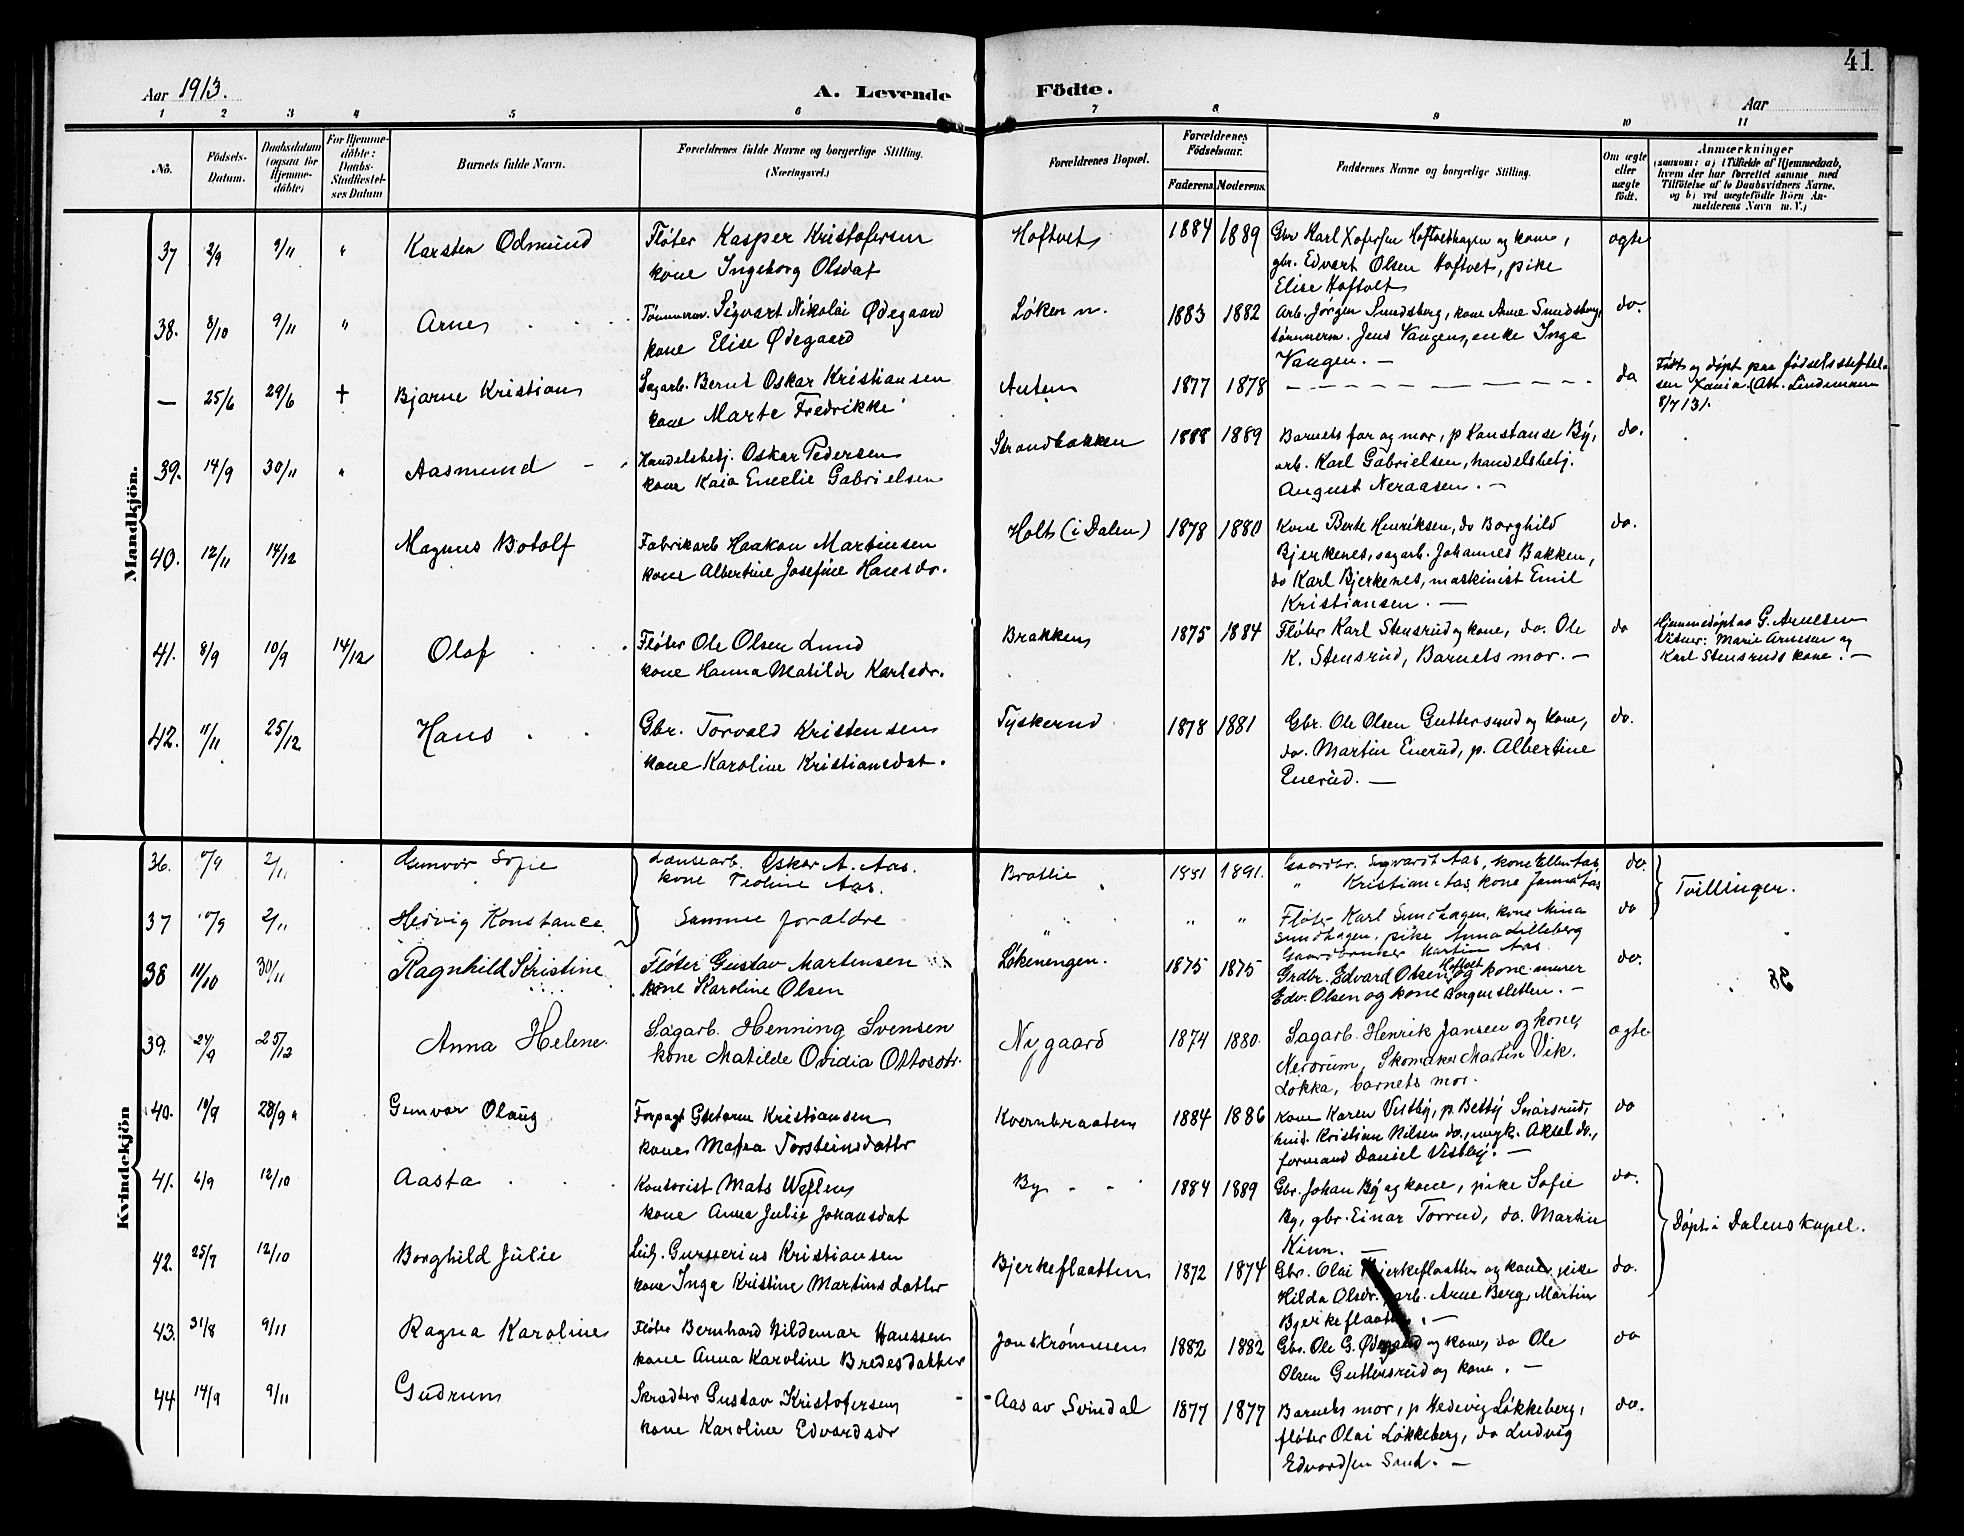 41
Aar 1913. A. Levende Födte. Aar
1 2 3 4 5 6 7 8 9 10 11
No. Födsels-Datum. Daabsdatum (ogsaa for Hjemme-döbte) For Hjemme-döbte: Daabs-Stadfæstel-ses Datum Barnets fulde Navn. Forældrenes fulde Navne og borgerlige Stilling. (Næringsvei.) Forældrenes Bopæl. Forældrenes Födselsaar. Faderens. Moderens. Faddernes Navne og borgerlige Stilling. Om ægte eller uægte födt. Anmærkninger
(saasom: a) i Tilfælde af Hjemmedaab,
hvem der har forrettet samme med
Tilföielse af to Daabsvidners Navne,
og b) ved uægtefödte Börn An-
melderens Navn m. V.)
Mandkjön.
37 2/9 9/11 " Karsten Odmund Fløter Kasper Kristofersen Hoftvet 1884 1889 Gbr Karl Xofersen Hoftvethagen og kone, ægte
kone Ingeborg Olsdat gbr. Edvart Olsen Hoftvet, pike
Elise Hoftvet
38. 8/10 9/11 " Arne Tømmerm. Sigvart Nikolai Ødegaard Løken 1883 1882 Arb. Jørgen Sundsberg, kone Anne Sundsberg, do.
kone Elise Ødegaard tømmerm. Jens Vangen, enke Inga
Vangen. —
— 25/6 29/6 + Bjarne Kristian Sagarb. Bernt Oskar Kristiansen 1877 1878 — — — — do Født og døpt paa fødselsstiftel-
kone Marte Fredrikke sen (Att. Lindemann
8/7 13).
39. 14/9 30/11 " Aasmund Handelsbetj. Oskar Pedersen Strandbakken 1888 1889 Barnets far og mor, p Konstanse By, do.
kone Kaia Emelie Gabrielsen arb. Karl Gabrielsen, handelsbetj.
August Neraasen. —
40. 12/11 14/12 Magnus Botolf Fabrikarb Haakon Martinsen Holt (i Dalen) 1878 1880 Kone Berte Henriksen, do Borghild do.
kone Albertine Josefine Hansdr. Bjerkenes, sagarb. Johannes Bakken,
do Karl Bjerkenes, maskinist Emil
Kristiansen. —
41. 8/9 10/9 14/12 Olaf Fløter Ole Olsen Lund Brakken 1875 1884 Fløter Karl Stensrud og kone, do. Ole do Hjemmedøpt av G. Arnesen
kone Hanna Matilde Karlsdr. K. Stensrud, Barnets mor. — Vitner: Marie Arnesen og
Karl Stensruds kone. —
42. 11/11 25/12 Hans Gbr. Torvald Kristensen Tyskerud 1878 1881 Gbr. Ole Olsen Guttersrud og kone, do.
kone Karoline Kristiansdat. do. Martin Enerud, p. Albertine
Enerud. —
Kvindekjön
36. 2/11 Gunvor Sofie Lænsearb. Oskar A. Aas. Bratlie 1891. Gaardbr. Sigvardt Aas, kone Ellen Aas do. Tvillinger.
kone Teoline Aas. " Kristian Aas, kone Janna Aas
37 2/11 Hedvig Konstance Samme forældre " " " Fløter Karl Sundhagen, kone Mina do
Sundhagen, pike Anna Lilleberg
Gaardbruker Martin Aas
38 11/10 30/11 Ragnhild Kristine Fløter Gustav Martinsen Løkenengen. 1875 1875 Grdbr. Edvard Olsen Hoftvet og kone murer do.
kone Karoline Olsen Edv. Olsen og kone Borgensletten. —
39. 24/9 25/12 Anna Helene Sagarb. Henning Svensen Nygaard 1874 1880. Sagarb. Henrik Jansen og kone, ægte
kone Matilde Ovidia Ottosdtr. Nerdrum, Skomaker Martin Vik.
Løkka, barnets mor.
40. 10/9 28/9 Gunvor Olaug Forpagt Gustav Kristiansen Kvernbraaten 1884 1886 Kone Karen Visthy, p. Betty Snarsrud, do
kone Torsteinsdatter Kristian Nilsen do., ungk. Aksel do.,
formand Daniel Vistby. —
41. 6/9 12/10 Aasta Kontorist Mats Weflen By 1884 1889 Gbr. Johan By og kone, pike Sofie do. Døpt i Dalens kapel.
kone Anna Julie Johansdat By, gbr. Einar Torrud, do. Martin
Kinn. —
42. 25/7 12/10 Borghild Julie Kristiansen Bjerkeflaaten 1872 1874 Gbr. Olai Bjerkeflaatten og kone, pike do.
kone Inga Kristine Martinsdatter Hilda Olsdr. arb. Arne Berg, Martin
Bjerkeflaaten. —
43. 31/8 9/11 Ragna Karoline Fløter Bernhard Hildemar Hanssen Jonstrømmen 1882 1882 Gbr. Ole G. Ødegaard og kone, do Ole do
kone Anna Karoline Bredesdatter Olsen Guttersrud og kone. —
44 14/9 9/11 Gudrun Skrædder Gustav Kristofersen Aas av Svindal 1877 1877 Barnets mor, p Hedevig Løkkeberg, do.
kone Karoline Edvardsdr fløter Olai Løkkeberg, do Ludvig
Edvardsen Sand. —